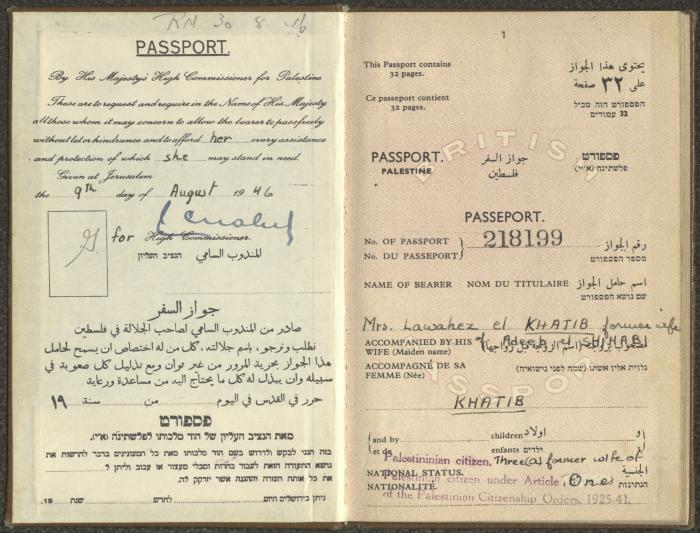 KN. 30 8. 46
PASSPORT.
By His Majesty's High Commissioner for Palestine
These are to request and require in the Name of His Majesty
all those whom it may concern to allow the bearer to pass freely
without let or hindrance and to afford her every assistance
and protection of which she may stand in need.
Given at Jerusalem
the 9th day of August 1946
for High Commissioner.
المندوب السامي הנציב העליון
جواز السفر
صادر من المندوب السامي لصاحب الجلالة في فلسطين
نطلب ونرجو، باسم جلالته، كل من له اختصاص ان يسمح لحامل
هذا الجواز بحرية المرور من غير توان ومع تذليل كل صعوبة في
سبيله وان يبذل له كل ما يحتاج اليه من مساعدة ورعاية
حرر في القدس في اليوم من سنة ١٩
פספורט
מאת הנציב העליון של הוד מלכותו לפלשתינה (א״י).
בזה הנני לבקש ולדרוש בשם הוד מלכותו מאת כל המעונינים בדבר להרשות את
נושא התעודה הזאת לעבור בחרות ומבלי מעצור או עכוב וליתן לו
את כל אותה העזרה וההגנה אשר יזדקק לה.
ניתן בירושלים היום לחדש שנת 19
1
This Passport contains
32 pages.
يحتوي هذا الجواز
على ٣٢ صفحة
Ce passeport contient
32 pages.
הפספורט הזה מכיל
32 עמודים
BRITISH
PASSPORT.
PALESTINE
جواز السفر
فلسطين
פספורט
פלשתינה (א״י)
PASSEPORT.
No. OF PASSPORT
No. DU PASSEPORT
218199
رقم الجواز
מספר הפספורט
NAME OF BEARER NOM DU TITULAIRE اسم حامل الجواز
שם נושא הפספורט
Mrs. Lawahez el KHATIB former wife
of Adeeb el SHIHABI
ACCOMPANIED BY HIS
WIFE (Maiden name)
ACCOMPAGNÉ DE SA
FEMME (Née)
נלוית אליו אשתו (שמה לפני נישואיה)
KHATIB
and by children اولاد و
et de enfants ילדים
Palestininian citizen, Three (a) former wife of
NATIONAL STATUS. الجنسية
palestinian citizen under Article, One
NATIONALITÉ. הנתינות
of the Palestinian Citizenship Orders, 1925-41.